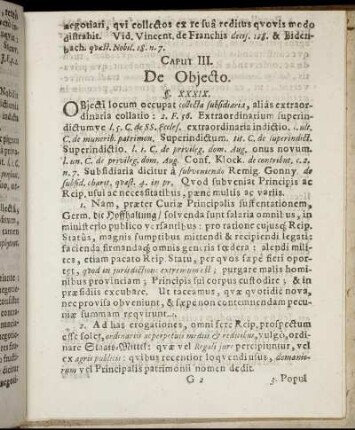 negotiari, qvi collectos ex re sua reditus qvovis modo
distrahit. Vid. Vincent. de Franchis decis. 128. & Bidenbach. qvæst. Nobil. 18. n. 7.
CAPUT III.
De Objecto.
§. XXXIX.
OBjecti locum occupat collecta subsidiaria, aliàs extraordinaria
collatio: 2. F. 56. Extraordinarium superindictumve
l. 5. C. de SS. Eccles. extraordinaria indictio. l. ult.
C. de munerib. patrimon. Superindictum. tit. C. de superindict.
Superindictio. l. 1. C. de privileg. dom. Aug. onus novum.
l. un. C. de privileg. dom. Aug. Conf. Klock. de contribut. c. 2.
n. 7. Subsidiaria dicitur à subveniendo Remig. Gonny. de
subsid. charit. qvæst. 4. in pr. Qvod subveniat Principis ac
Reip. usui ac necessitatibus, pæne multis ac variis.
1. Nam, præter Curiæ Principalis sustentationem,
Germ. die Hoffhaltung / solvenda sunt salaria omnibus, in
ministerio publico versantibus: pro ratione cujusq; Reip.
Status, magnis sumptibus mittendi & recipiendi legati:
facienda firmandaq; omnis generis fœdera: alendi milites,
etiam pacato Reip. Statu, per qvos sæpè fieri oportet,
qvod in jurisdictione extremum est; purgare malis hominibus
provinciam; Principis sui corpus custodire; & in
præsidiis excubare. Ut taceatur, qvæ qvotidiè nova,
nec provisa obveniunt, & sæpe non contemnendam pecuniæ
summam reqvirunt.
2. Ad has erogationes, omni ferè Reip. prospectum
esse solet, ordinariis ac perpetuis mediis & reditibus, vulgò, ordinare
Staats-Mittel: qvæ vel Regali jure percipiuntur, vel
ex agris publicis: qvibus recentior loqvendi usus, domaniorum
vel Principalis patrimonii nomen dedit.
G 2 3. Popul